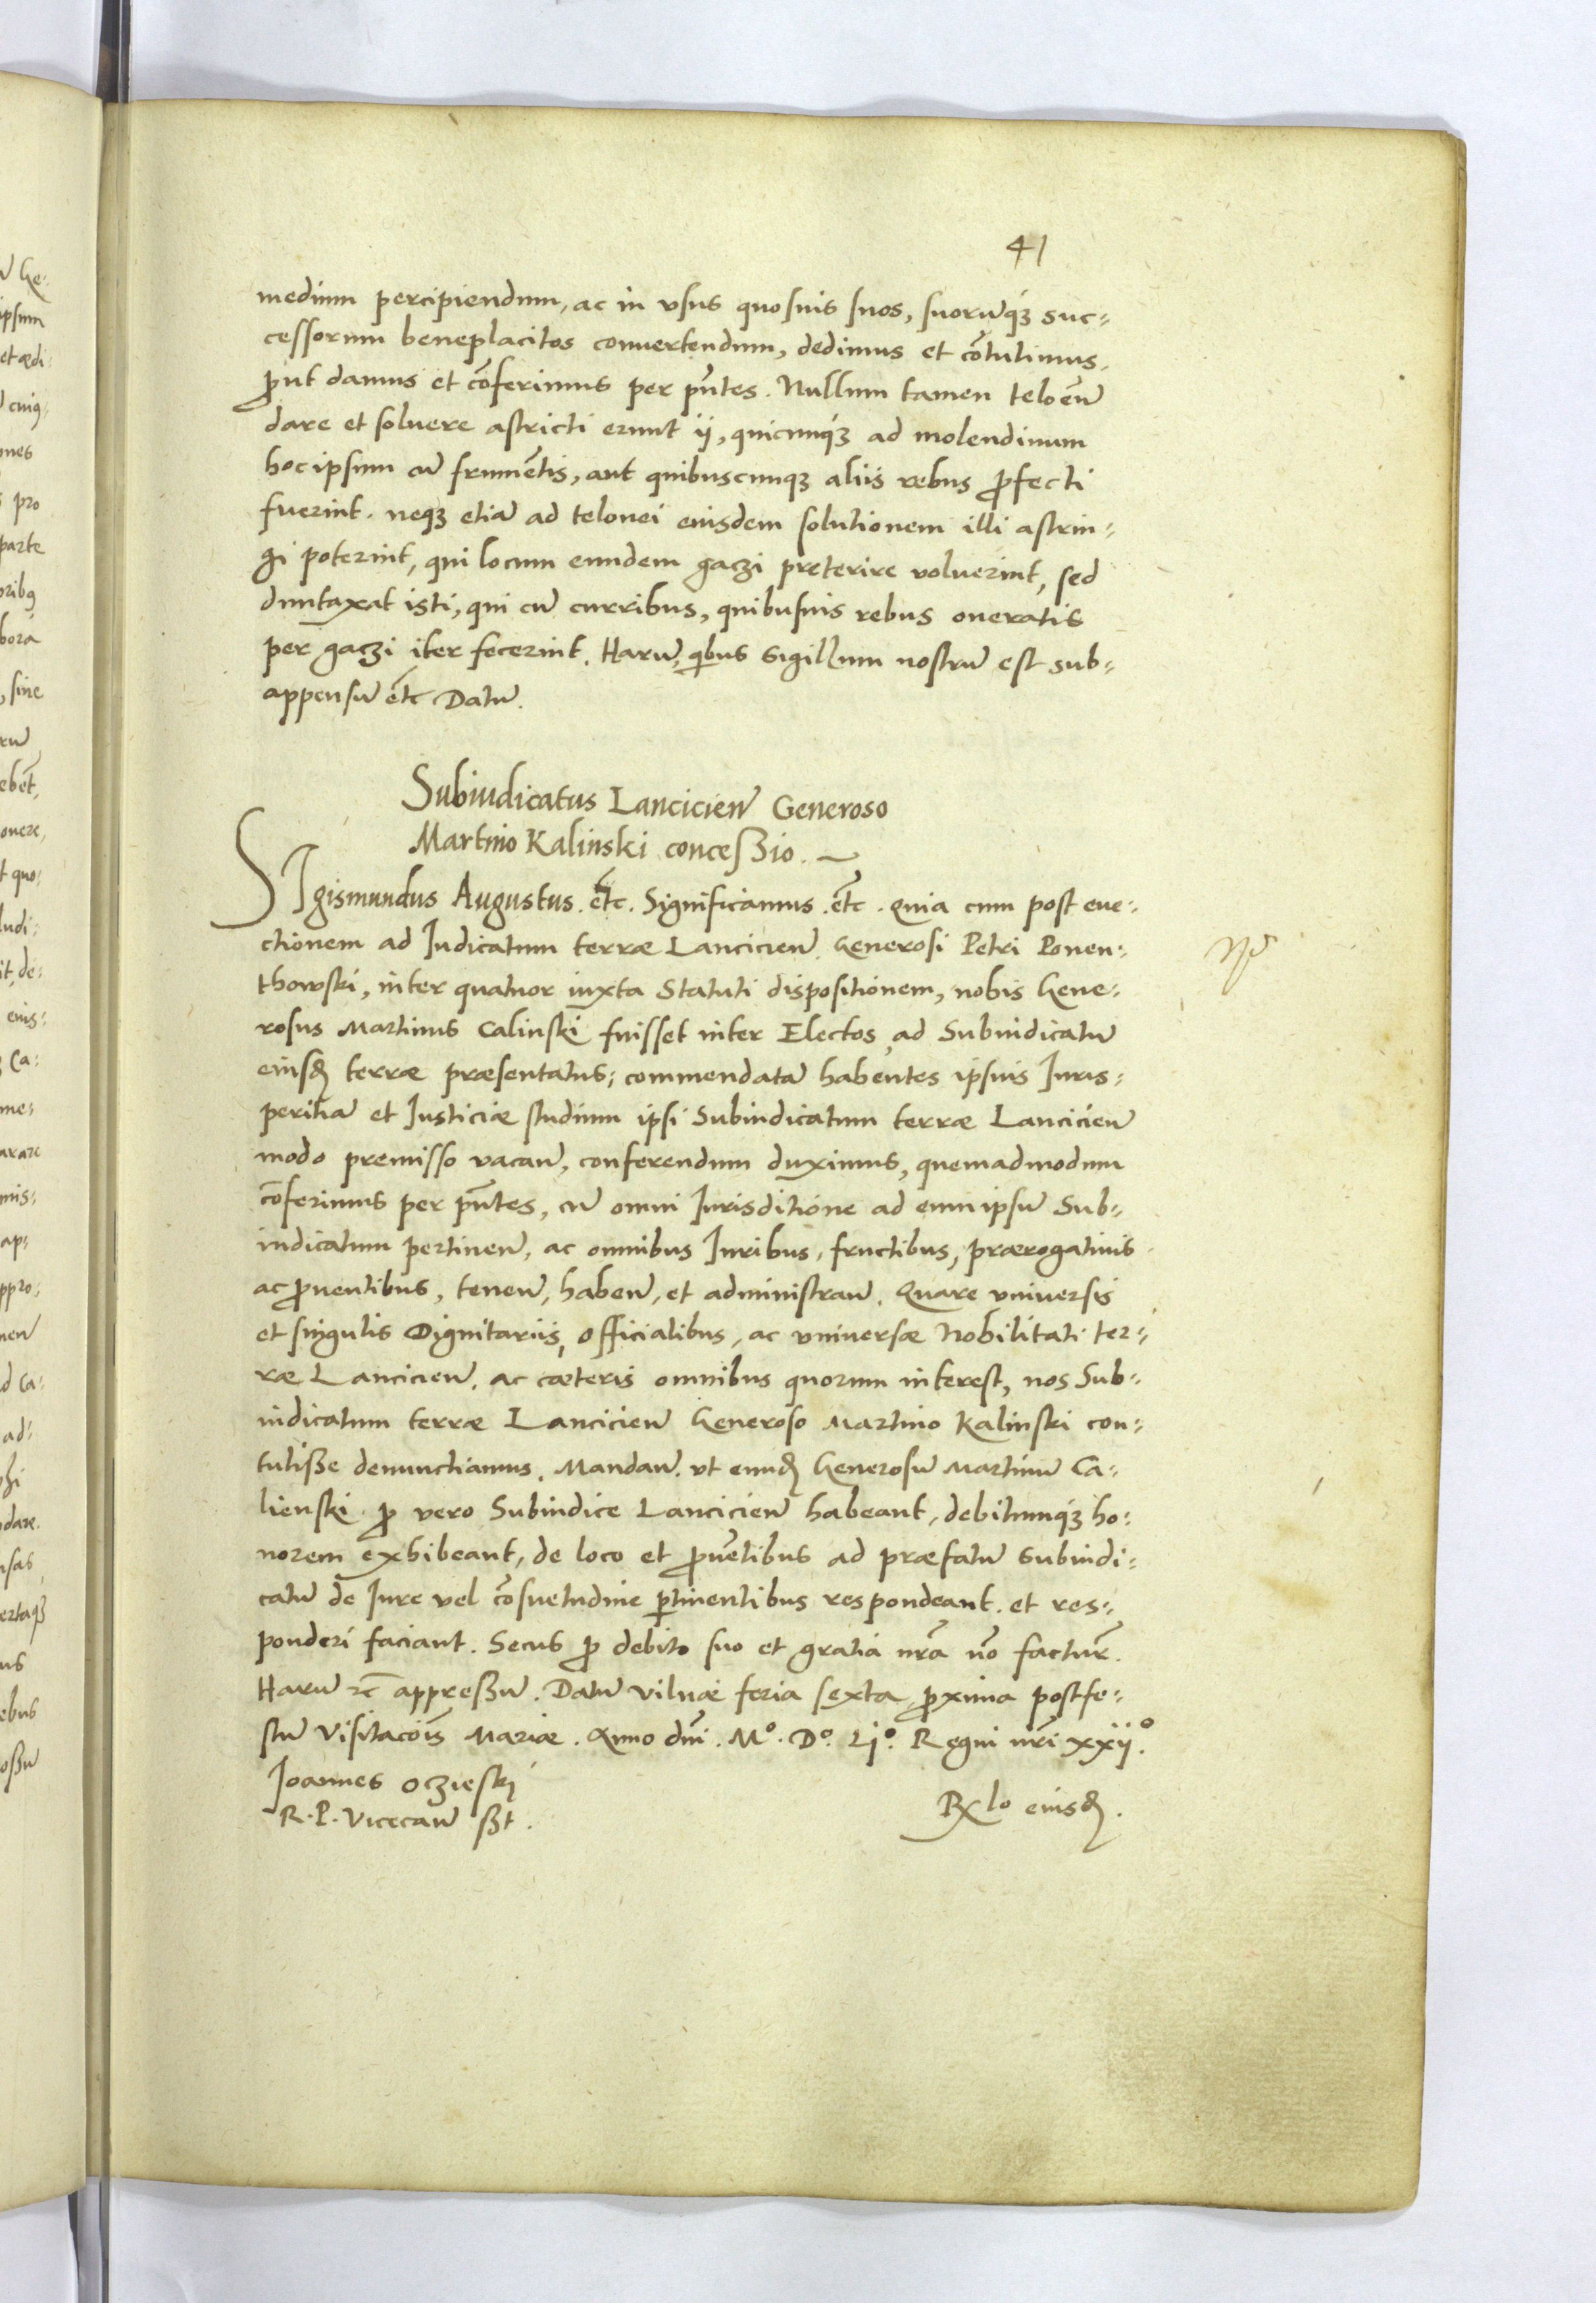 41
medium percipiendum, ac in vsus quosuis suos, suorūq́ꝫ suc-
cessorum beneplacitos conuertendum, dedimus et cōtulimus,
ꝓut damus et cōferimus per pn̄tes. Nullum tamen teloēu̅
dare et soluere astricti erunt ij, quicunq́ꝫ ad molendinum
hoc ipsum cū frumētis, aut quibuscunqꝫ aliis rebus ꝓfecti
fuerint. neqꝫ etiā ad telonei eiusdem solutionem illi astrin-
gi poterint, qui locum eundem gaczi preterire voluerint, sed
duntaxat isti, qui cū curribus, quibusuis rebus oneratis
per gaczi iter fecerint. Harū, qbus Sigillum nostrū est sub-
appensū et̄c Datū.
Subiudicatus Lancicien̄ Generoso
Martino Kalinski conceßio.
SIgismundus Augustus. et̄c. Significamus. et̄c. quia cum post eue-
ctionem ad Iudicatum terræ Lancicien̄. Generosi Petri Ponen-
thowski, inter quatuor iuxta Statuti dispositionem, nobis Gene-
rosus Martinus Calinski fuisset inter Electos, ad Subiudicatū
eiusd̄ terræ præsentatus; commendatā habentes ipsuis Iuris-
peritiā et Iusticiæ studium ipsi Subiudicatum terræ Lancicien̄
modo premisso vacan̄, conferendum duximus, quemadmodum
cōferimus per pn̄tes, cū omni Iurisditione ad eum ipsū Sub-
iudicatum pertinen̄, ac omnibus Iuribus, fructibus, prærogatiuis
ac ꝓuentibus, tenen̄, haben̄, et administran̄. Quare vniuersis
et singulis Dignitariis, officialibus, ac vniuersæ Nobilitati ter-
ræ Lancicien̄. ac cæteris omnibus quorum interest, nos Sub-
iudicatum terræ Lancicien̄ Generoso Martino Kalinski con-
tulisse denunctiamus. Mandan̄. vt eund̄ Generosū Martinū Ca-
lienski ꝓ vero Subiudice Lancicien̄ habeant, debitumq́ꝫ ho-
norem exhibeant, de loco et ꝓuētibus ad præfatū Subiudi-
catū de Iure vel cōsuetudine ꝑtinentibus respondeant. et res-
ponderi faciant. Secus ꝓ debito suo et gratia nr̄a nō factur̄.
Harū ꝛc̄ appreßū. Datū Vilnæ feria sexta ꝓxima post fe-
stū Visitacōis Mariæ. Anno dn̄i. Mº. Dº. Ljº. Regni nr̄i xxijº.
Joannes Oczieski
R. P. Vicecan̄ ßt.
Rlo eiusd̄.